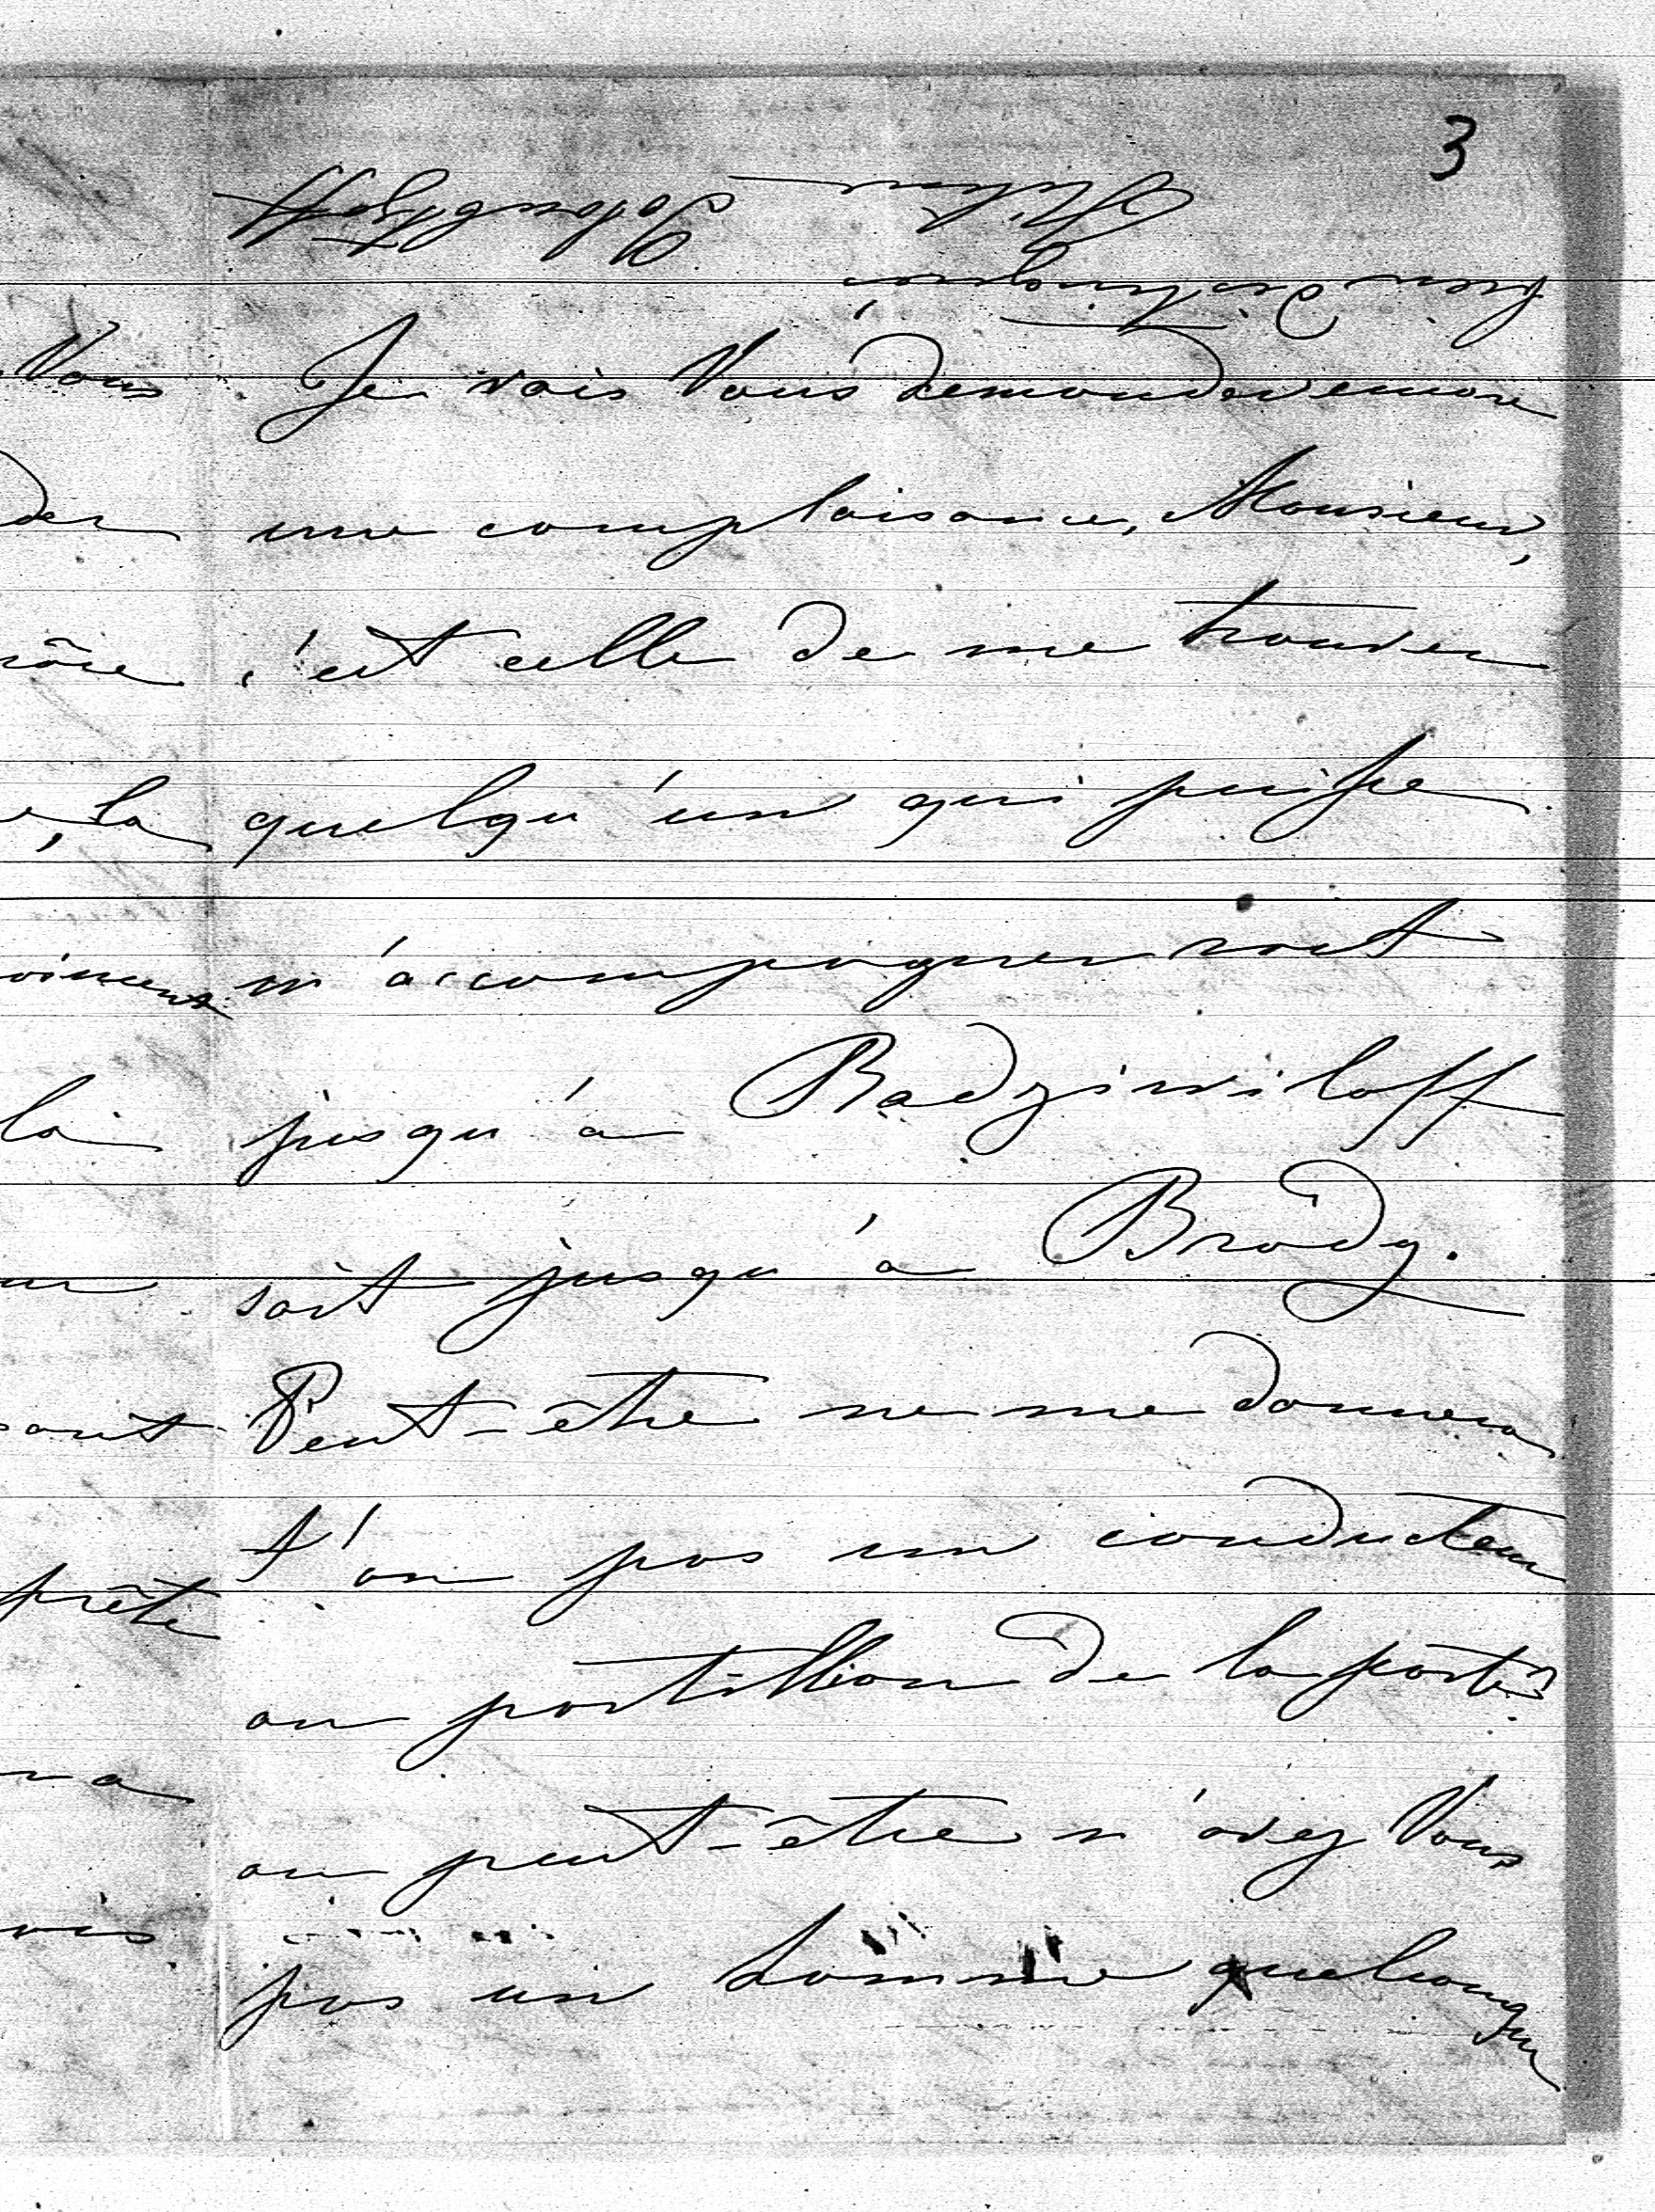 3
Je vais Vous demander encore
une complaisance, Monsieur,
c'est celle de me trouver
quelqu'un qui puisse
m'accompagner soit
jusqu'à Radziwiloff
soit jusqu'à Brody.
Peut-être ne me donnera
t'on pas un conducteur
ou postillion de la poste?
ou peut-être n'avez Vous
pas un homme quelconque
Vous
la
la
sont
prête